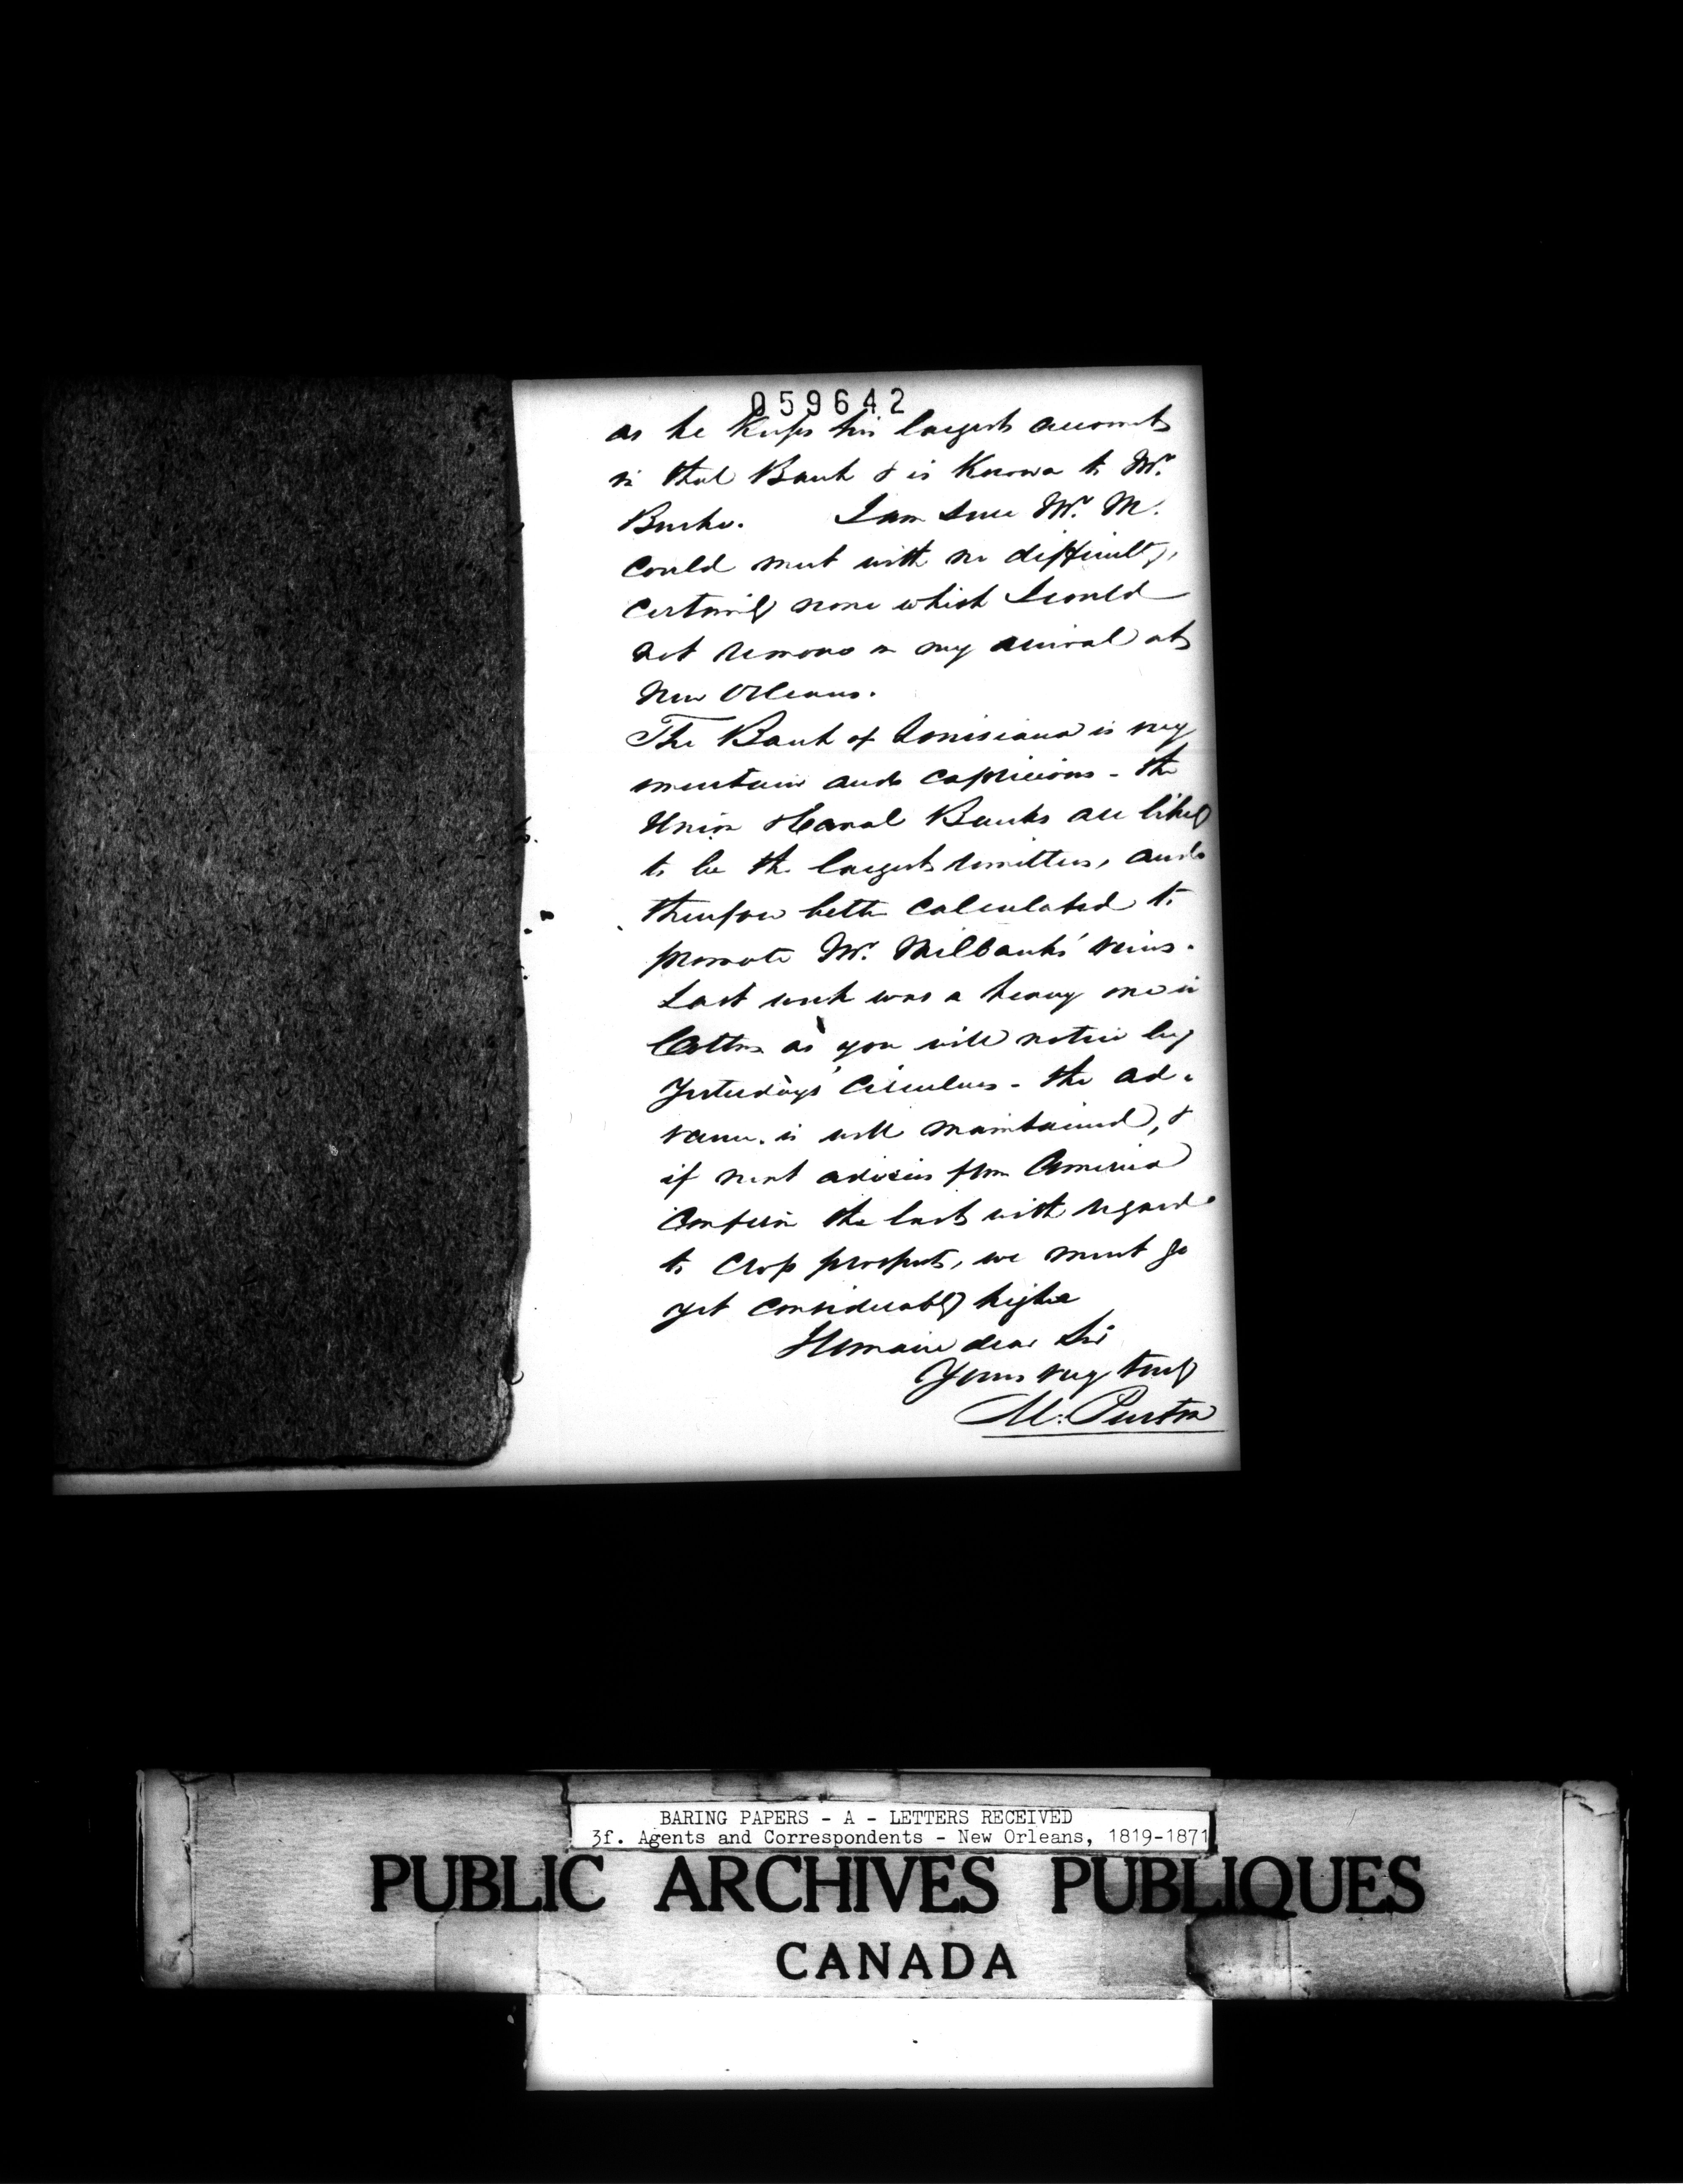 059642
as he keeps his largest accounts
in that Bank & is known to Mr.
Burke. I am sure Mr. M.
could meet with no difficulty,
certainly none which I could
not remove on my arrival at
New Orleans.
The Bank of Louisiana is very
uncertain and capricious - the
Union & Canal Banks are likely
to be the largest remitters, and
therefore better calculated to
promote Mr. Milbanks' views.
Last week was a heavy one in
Cotton as you will notice by
yesterday's Circulars - the ad-
vance is well maintained, &
if next advices from America
confirm the last with regard
to Crop prospects, we must go
yet considerably higher
I remain dear Sir
Yours very truly
BARING PAPERS - A - LETTERS RECEIVED
3f. Agents and Correspondents - New Orleans, 1819-1871
PUBLIC ARCHIVES PUBLIQUES
CANADA